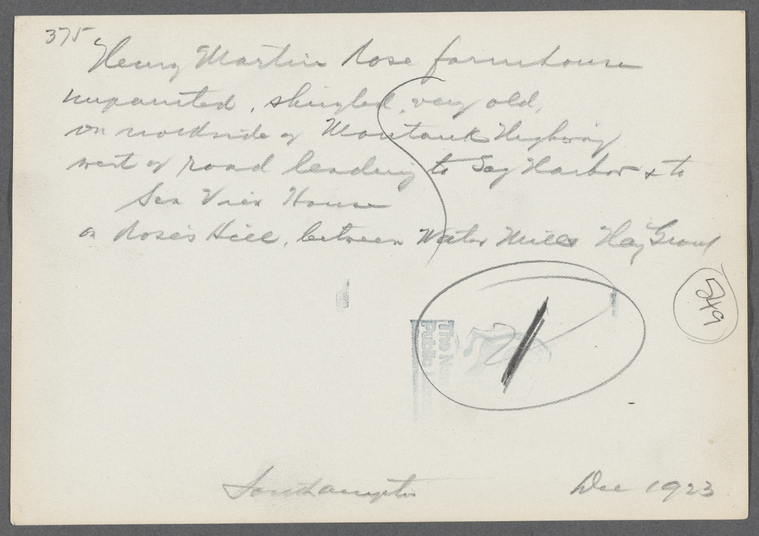 375
Henry Martin Rose farmhouse
unpainted, shingled, very old,
on northside of Montauk Highway
west of road leading to Sag Harbor & to
Sea View House
on Rose's Hill, between Water Mill & Hay Ground
549
1
The New
Public
Southampton Dec 1923